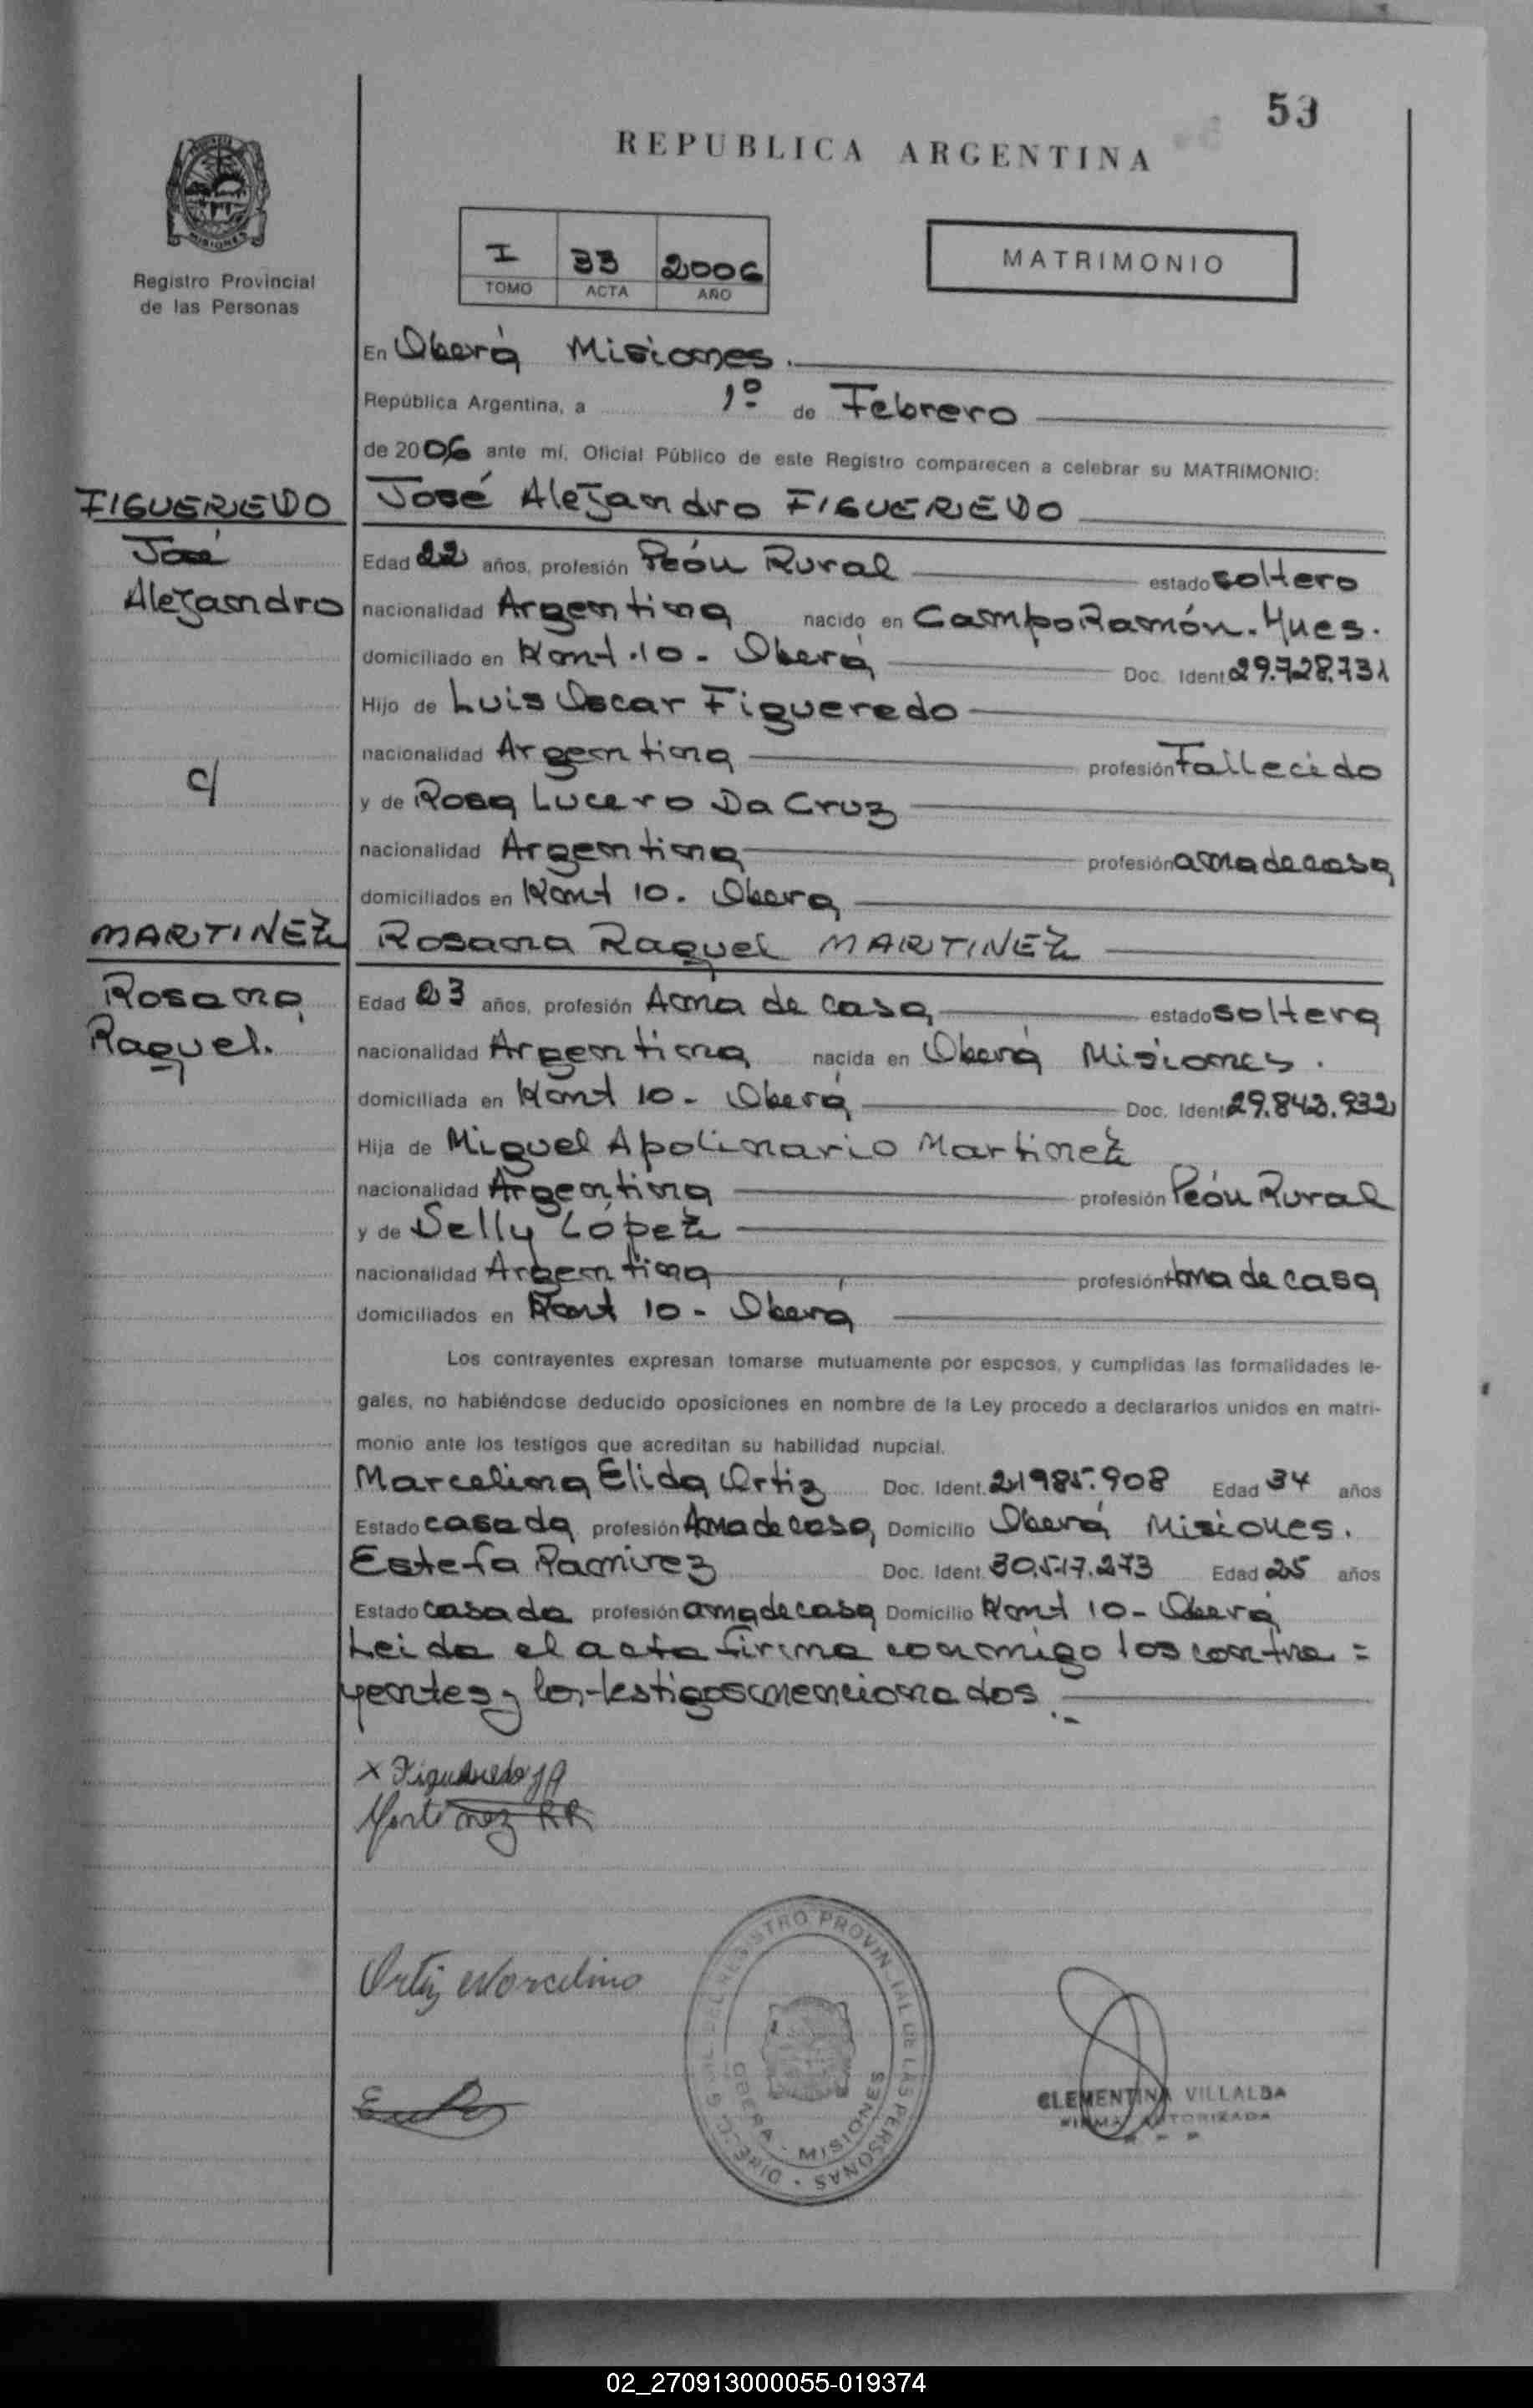 53
REPUBLICA ARGENTINA
MISIONES
Registro Provincial
de las Personas
I 33 2006
TOMO ACTA AÑO
MATRIMONIO
En Oberá Misiones.
República Argentina, a 1º de Febrero
de 2006 ante mí, Oficial Público de este Registro comparecen a celebrar su MATRIMONIO:
FIGUEREDO
José
Alejandro
c/
MARTINEZ
Rosana
Raquel.
José Alejandro FIGUEREDO
Edad 22 años, profesión Peón Rural estado soltero
nacionalidad Argentina nacido en Campo Ramón. Mnes.
domiciliado en Km 10 - Oberá Doc. Ident 29.728.731
Hijo de Luis Oscar Figueredo
nacionalidad Argentina profesión Fallecido
y de Rosa Lucero Da Cruz
nacionalidad Argentina profesión ama de casa
domiciliados en 10. Oberá
Rosana Raquel MARTINEZ
Edad 23 años, profesión Ama de casa estado soltera
nacionalidad Argentina nacida en Oberá Misiones.
domiciliada en 10 - Oberá Doc. Ident 29.843.932
Hija de Miguel Apolinario Martinez
nacionalidad Argentina profesión Peón Rural
y de Selly López
nacionalidad Argentina profesión Ama de casa
domiciliados en 10 - Oberá
Los contrayentes expresan tomarse mutuamente por esposos, y cumplidas las formalidades le-
gales, no habiéndose deducido oposiciones en nombre de la Ley procedo a declararlos unidos en matri-
monio ante los testigos que acreditan su habilidad nupcial.
Marcelina Elida Ortiz Doc. Ident. 21985.908 Edad 34 años
Estado casada profesión Ama de casa Domicilio Oberá Misiones.
Estefa Ramirez Doc. Ident. 30.517.273 Edad 25 años
Estado casada profesión ama de casa Domicilio 10 - Oberá
Leida el acta firma conmigo los contra=
yentes y los testigos mencionados.
x Figueredo JA
Martinez RR
Ortiz Marcelina
DIREC. GRAL. DEL REGISTRO PROVINCIAL DE LAS PERSONAS
OBERA - MISIONES
CLEMENTINA VILLALBA
FIRMA AUTORIZADA
02_270913000055-019374